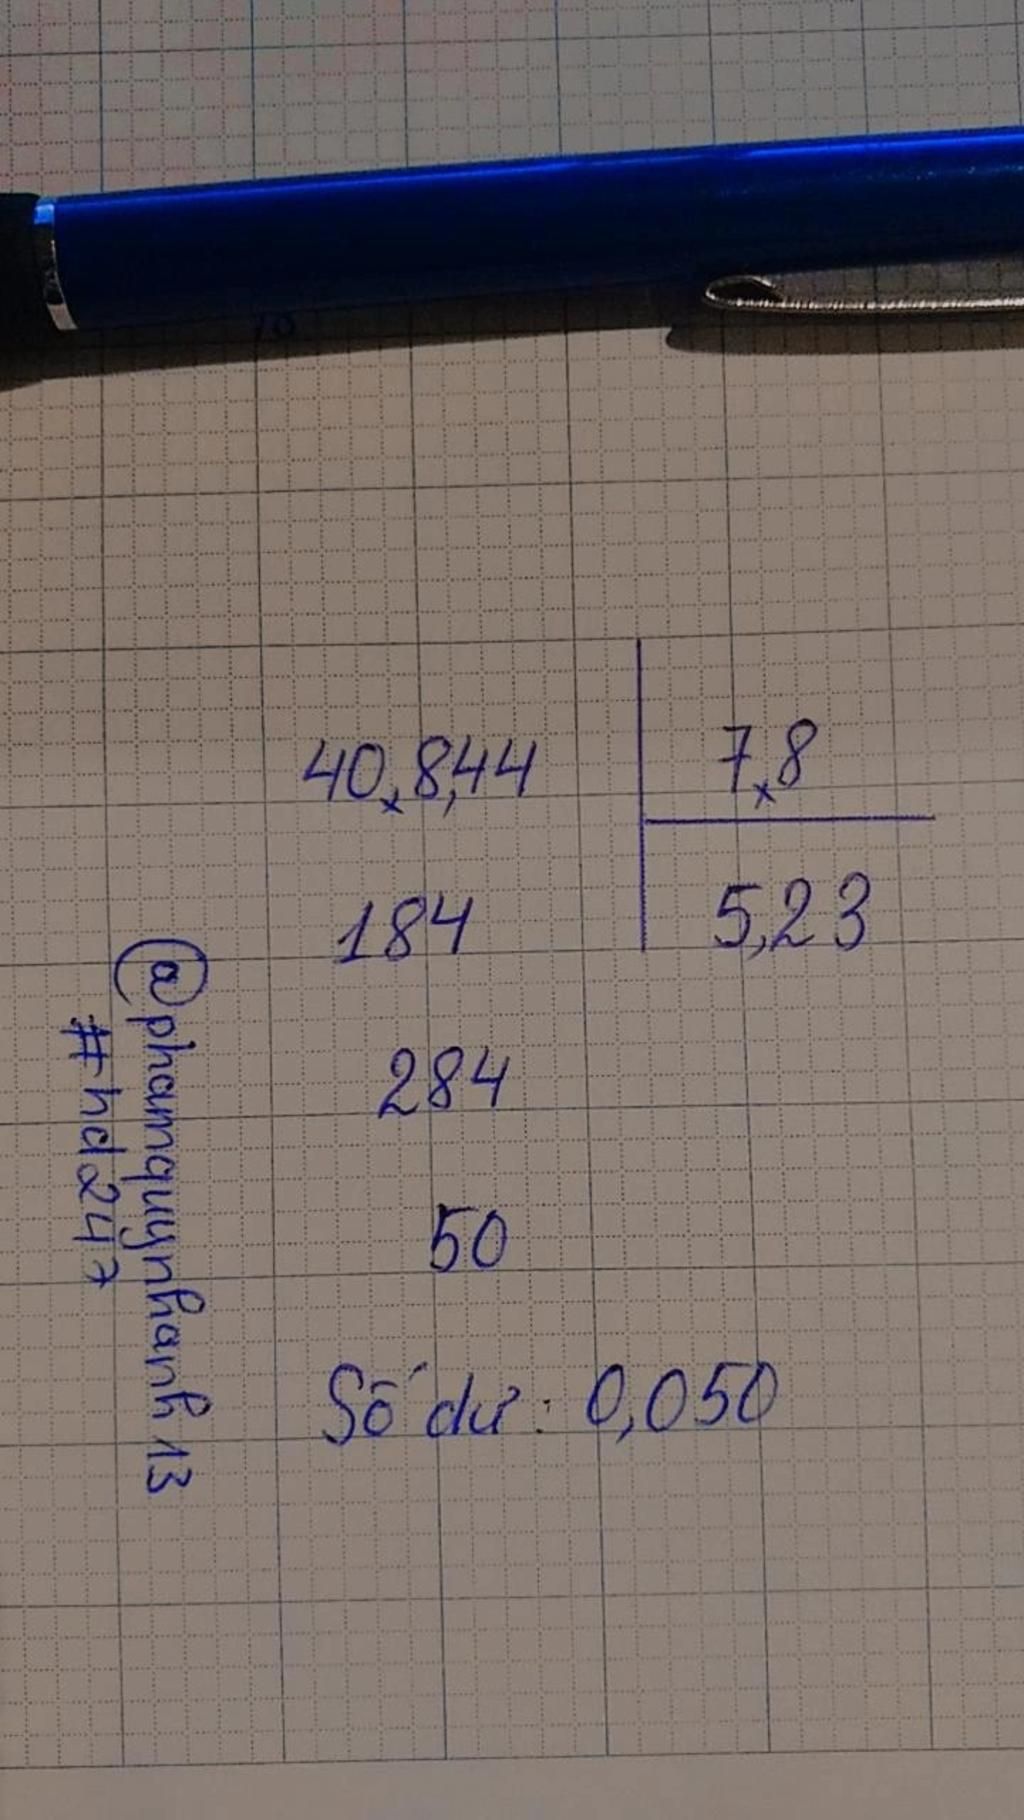 40,8,44 7,8
184 5,23
284
50
Số dư: 0,050
@phamquynhanh13
#hd247